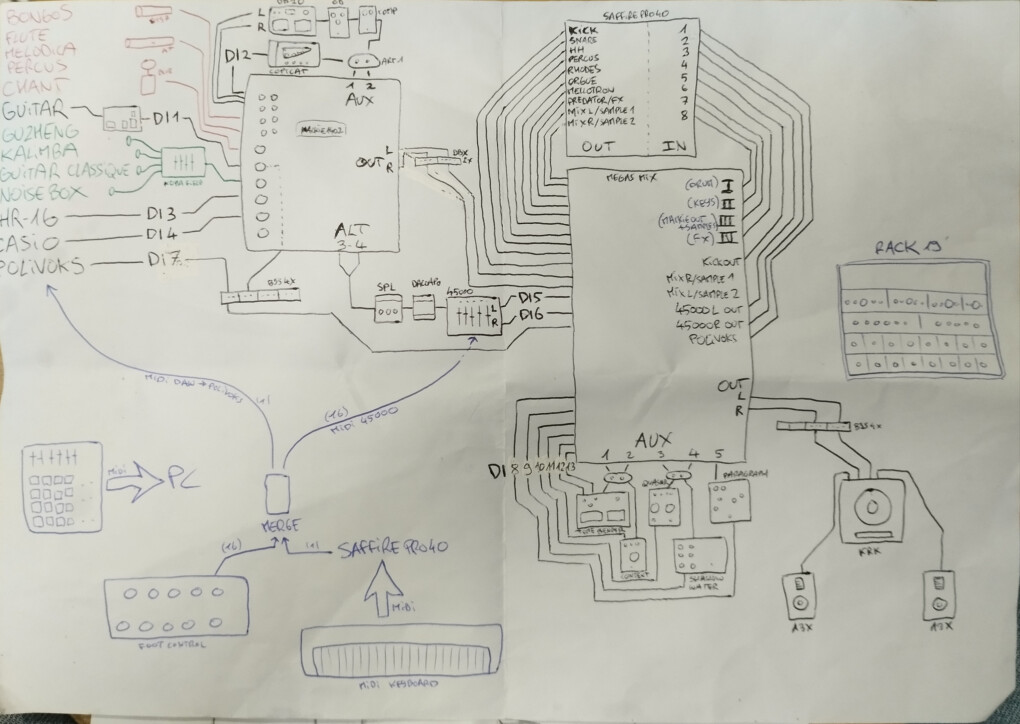 BONGOS
FLUTE
MELODICA
PERCUS
CHANT
GUITAR
GUZHENG
KALIMBA
GUITAR CLASSIQUE
NOISE BOX
HR-16
CASIO
POLIVOKS
DI1
DI3
DI4
DI7
L
R
DI2
1 2
AUX
OUT
L
R
ALT
3-4
SPL
45000
L
R
DI5
DI6
SAFFIRE PRO 40
KICK
SNARE
HH
PERCUS
RHODES
ORGUE
MELLOTRON
PREDATOR/FX
MIX L/SAMPLE 1
MIX R/SAMPLE 2
1
2
3
4
5
6
7
8
OUT
IN
MEGAS MIX
(DRUM) I
(KEYS) II
III
(FX) IV
KICK OUT
MIX R/SAMPLE 1
MIX L/SAMPLE 2
45000L OUT
45000R OUT
POLIVOKS
OUT
L
R
AUX
1 2 3 4 5
DI 8 9 10 11 12 13
CONTEXT
SHALLOW
WATER
KRK
A3X
RACK 19"
MIDI DAW → POLIVOKS
(1)
(16)
MIDI 45000
MIDI
PC
MERGE
(16)
(1)
SAFFIRE PRO 40
MIDI
FOOT CONTROL
MIDI KEYBOARD